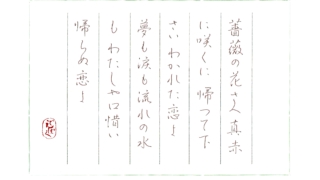 薔薇の花さへ真赤
に咲くに帰つて下
さいわかれた恋よ
夢も涙も流れの水
もわたしや口惜い
帰らぬ恋よ